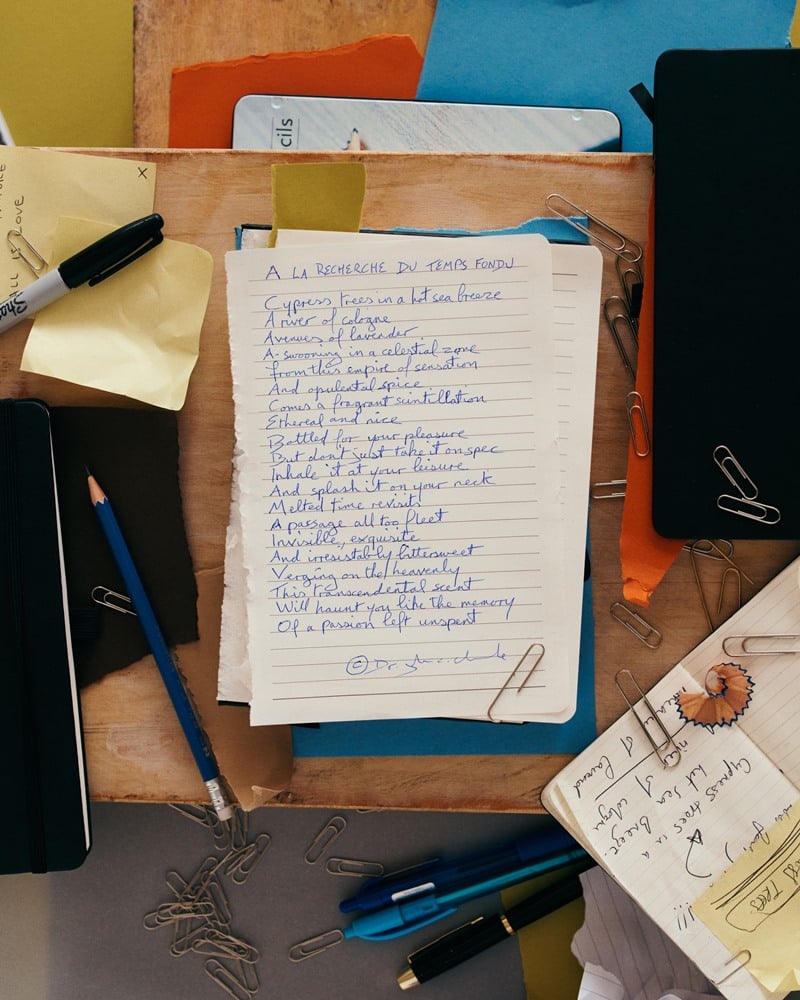 A LA RECHERCHE DU TEMPS FONDU
Cypress trees in a hot sea breeze
A river of cologne
Avenues of lavender
A-swooning in a celestial zone
From this empire of sensation
And opulental spice
Comes a fragrant scintillation
Ethereal and nice
Bottled for your pleasure
But don't just take it on spec
Inhale it at your leisure
And splash it on your neck
Melted time revisits
A passage all too fleet
Invisible, exquisite
And irresistably bittersweet
Verging on the heavenly
This transcendental scent
Will haunt you like the memory
Of a passion left unspent
© Dr.
cils
x
LOVE
Sha
Cypress trees in a
hot sea Breeze.
cologne
TREES
!!!